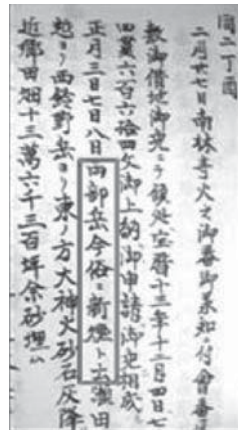 同二丁酉
二月廿七日南林寺火之御番御承知ニ付會番
敷御借地御免ニテ後处宝暦十三年十二月四日七
四貫六百六拾四文御上納御申請御免相成
正月三日七日八日両部岳今俗ニ新煙ト云瀬田
越ヨリ西鈴野岳ヨリ東ノ方大神火砂石灰降
近郷田畑十三萬六千三百坪余砂埋ム